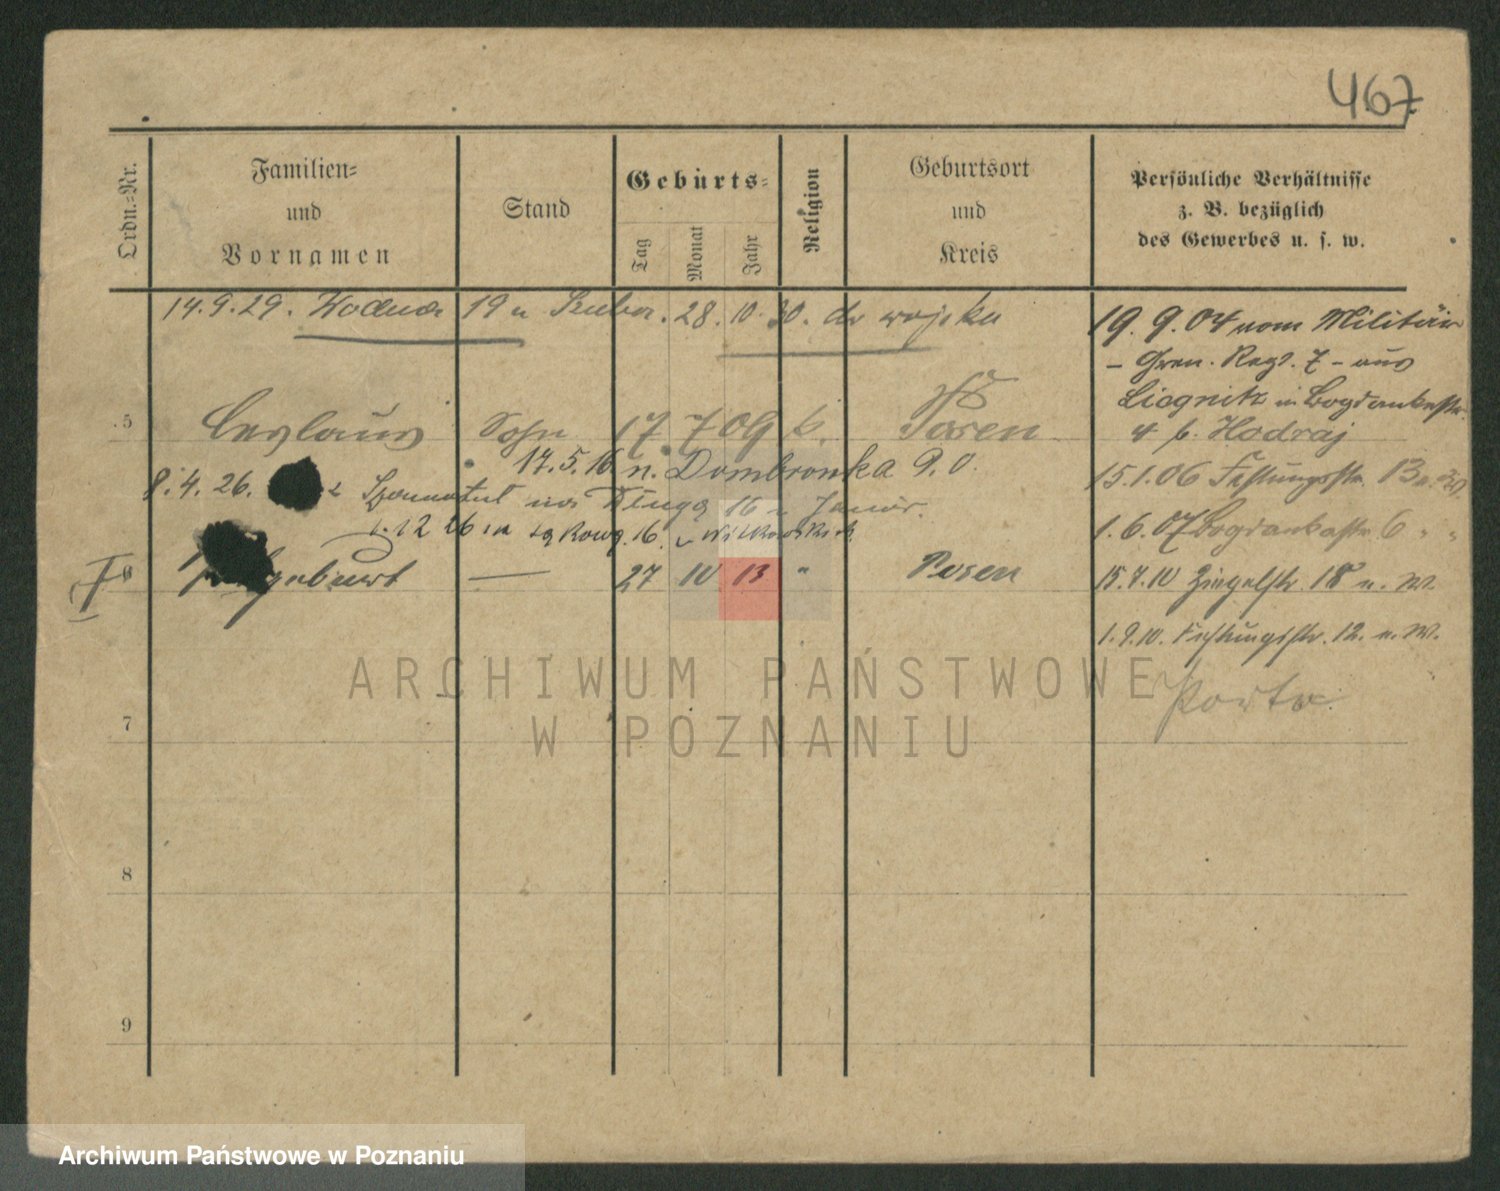 467
Ordn.-Nr.
Familien-
und
Vornamen
Stand
Geburts-
Tag
Monat
Jahr
Religion
Geburtsort
und
Kreis
Persönliche Verhältnisse
z. B. bezüglich
des Gewerbes u. s. w.
14.9.29. Wodna 19 u 28.10.30. do wojska
19.9.04 vom Militär
- Gren. Regt. 7 - aus
Liegnitz in Bogdankastr.
4 b. Hodraj
5 Ceslaus Sohn 17 7 09 k. Posen
17.5.16 n. Dombrowka 9.0.
15.1.06 Festungsstr. 13
8.4.26. 16 u
1.12 26 16. Witkowski
1.6.07 Bogdankastr. 6 " "
6 geburt — 27 10 13 " Posen
15.7.10 Ziegelstr. 18 u. W.
1.9.10. Festungsstr. 12. u. W.
Porto
7
8
9
ARCHIWUM PAŃSTWOWE
W POZNANIU
Archiwum Państwowe w Poznaniu